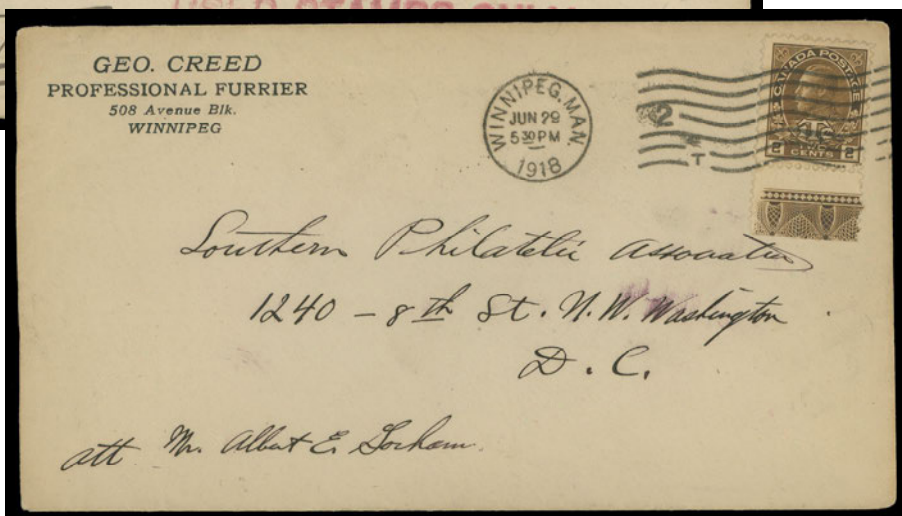 USED STAMPS ONLY
GEO. CREED
PROFESSIONAL FURRIER
508 Avenue Blk.
WINNIPEG
WINNIPEG, MAN.
JUN 29
5 30 PM
1918
2
T
CANADA POSTAGE
1Tc
2 CENTS 2
Southern Philatelic Association
1240 - 8th St. N.W. Washington
D. C.
att Mr. Albert E. Gorham.